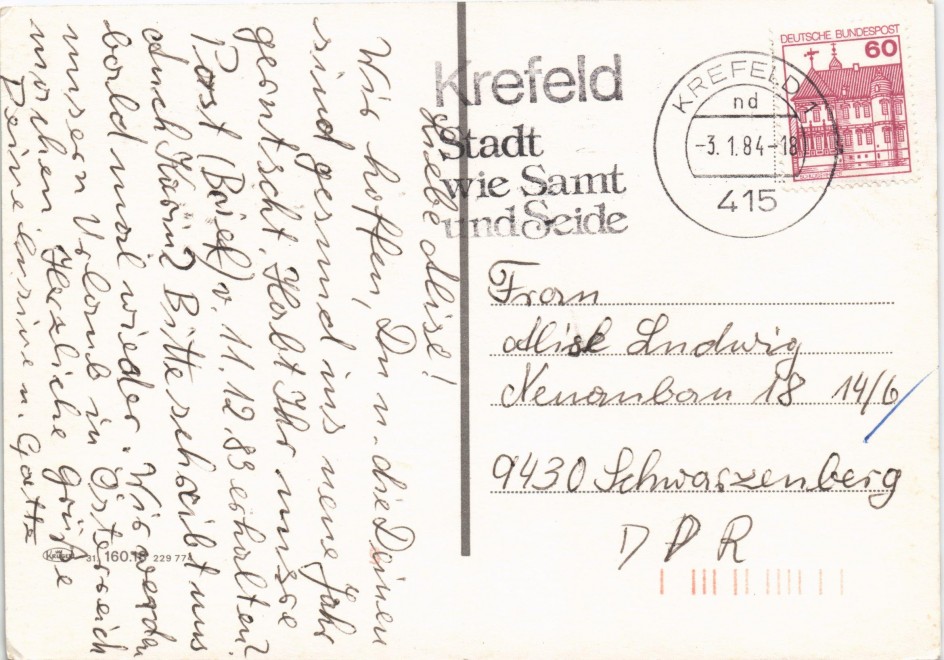 Liebe Alise!
Wir hoffen, Du u. die Deinen
sind gesund ins neue Jahr
gerutscht. Habt Ihr unsre
Post (Brief) v. 11.12.83 erhalten?
Auch Karin? Bitte schreibt uns
bald mal wieder. Wir werden
unsern Urlaub in Österreich
machen. Herzliche Grüße
Deine u. Gatte
Krüger 31. 160.18 229 772
Krefeld
Stadt
wie Samt
und Seide
KREFELD 1
nd
-3.1.84-18
415
DEUTSCHE BUNDESPOST
60
Frau
Alise Ludwig
Neuanbau 18 14/6
9430 Schwarzenberg
DDR